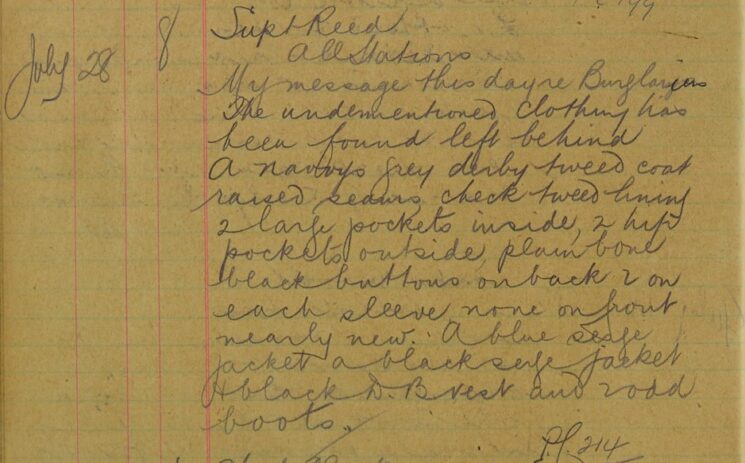 Supt Reed
July 28 8 All Stations
My message this day re Burglaries
The undementioned clothing has
been found left behind
A navvys grey derby tweed coat
raised seams check tweed lining
2 large pockets inside, 2 hip
pockets outside, plain bone
black buttons on back 2 on
each sleeve none on front
nearly new. A blue serge
jacket a black serge jacket
& black D. B vest and 2 odd
boots.
P.S. 214